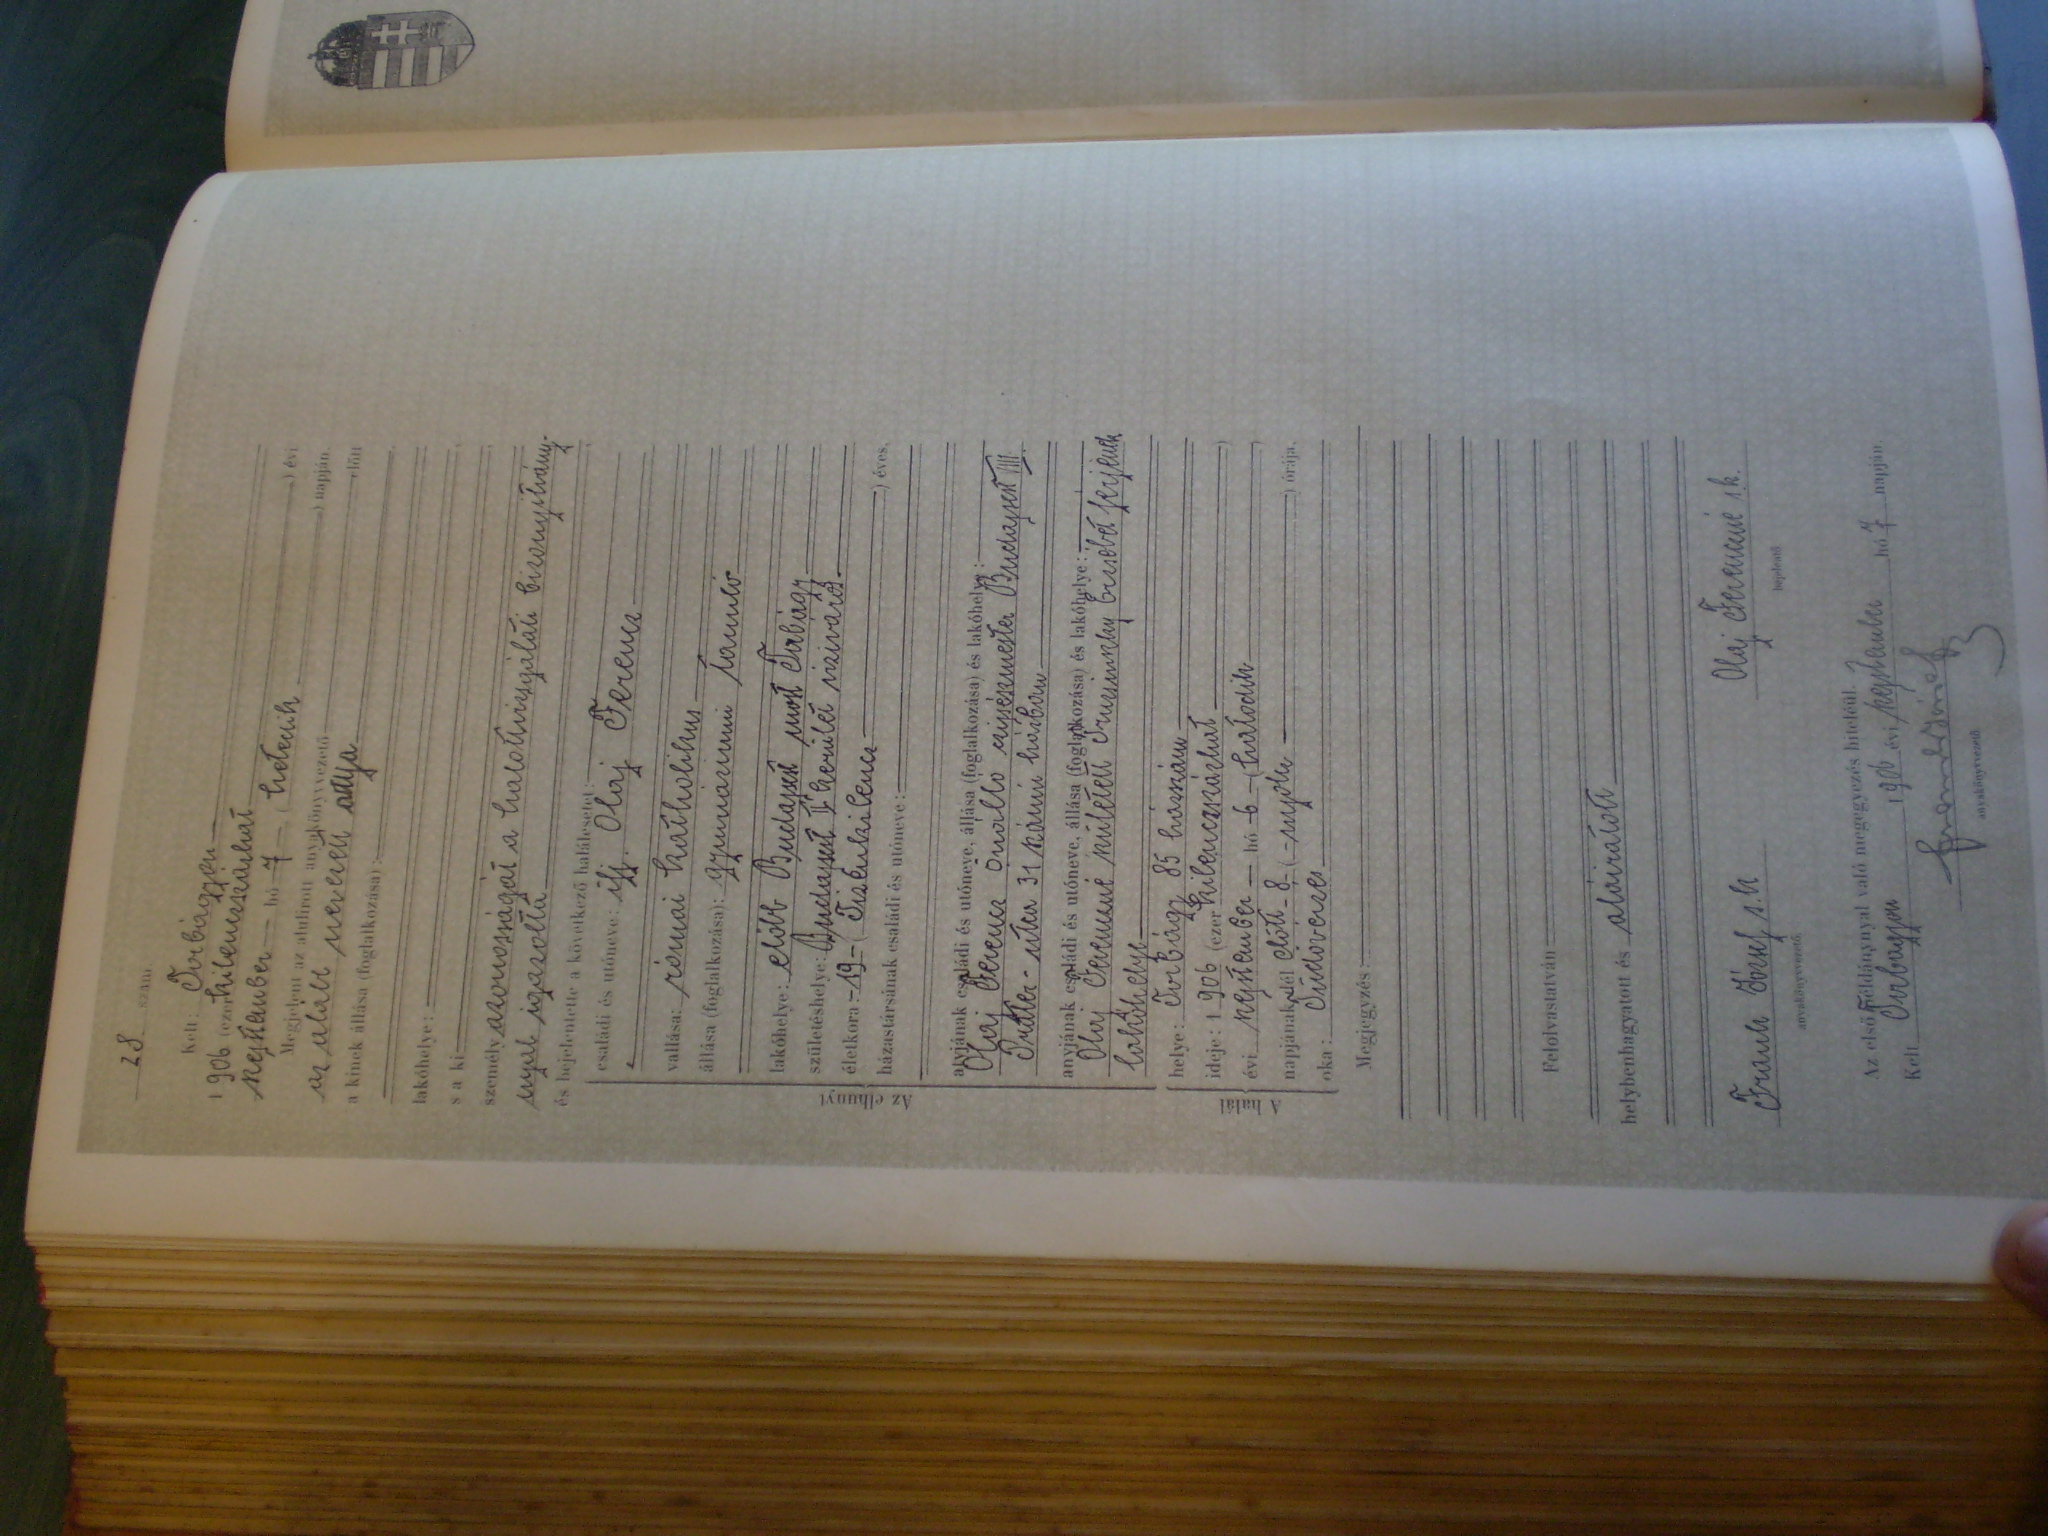 28 szám.
Kelt: Torbágyon
1906 (ezer kilenczszázhat) évi
szeptember hó 7 (hetedik) napján.
Megjelent az alulirott anyakönyvvezető előtt
az alább nevezett atyja
a kinek állása (foglalkozása):
lakóhelye:
s a ki
személyazonosságát a halottvizsgálati bizonyitvány-
nyal igazolta
és bejelentette a következő halálesetet:
Az elhunyt
családi és utóneve: ifj. Olaj Ferencz
vallása: római katholikus
állása (foglalkozása): gymnaziumi tanuló
lakóhelye: előbb Budapest most Torbágy
születéshelye: Budapest II kerület viziváros
életkora: 19 (Tizenkilencz) éves.
házastársának családi és utóneve:
atyjának családi és utóneve, állása (foglalkozása) és lakóhelye:
Olaj Ferencz önálló Budapest VIII.
Práter-utca 31 számú házban
anyjának családi és utóneve, állása (foglalkozása) és lakóhelye:
Olaj Ferencné született Erzsébet férjének
lakóhelye
A halál
helye: Torbágy 85 házszám
ideje: 1906 (ezer kilenczszázhat)
évi szeptember hó 6 (hatodik)
napjának dél előtt 8 (nyolc) órája.
oka: Tüdővérzés
Megjegyzés:
Felolvastatván
helybenhagyatott és aláiratott
Frank József s.k. Olaj Ferencné s.k.
anyakönyvvezető bejelentő
Az első példánynyal való megegyezés hiteléül.
Kelt Torbágyon 1906 évi szeptember hó 7 napján
Frank József
anyakönyvvezető